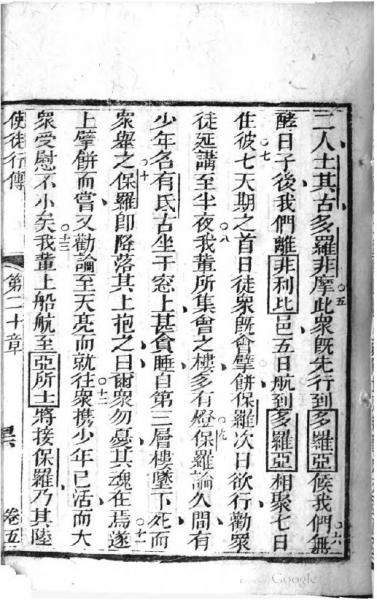 二人士其古多羅非摩此衆既先行到多羅亞候我們無
酵日子後我們離非利比邑五日航到多羅亞相聚七日
住彼七天期之首日徒衆既會擘餅保羅次日欲行勸衆
徒延講至半夜我輩所集會之樓多有燈保羅論久間有
少年名有氐古坐于窓上甚貪睡自第三層樓墜下死而
衆舉之保羅即降落其上抱之曰爾衆勿憂其魂在焉遂
上擘餅而嘗又勸論至天亮而就往衆携少年已活而大
衆受慰不小矣我輩上船航至亞所士將接保羅乃其陸
使徒行傳 第二十章 卷五
Google